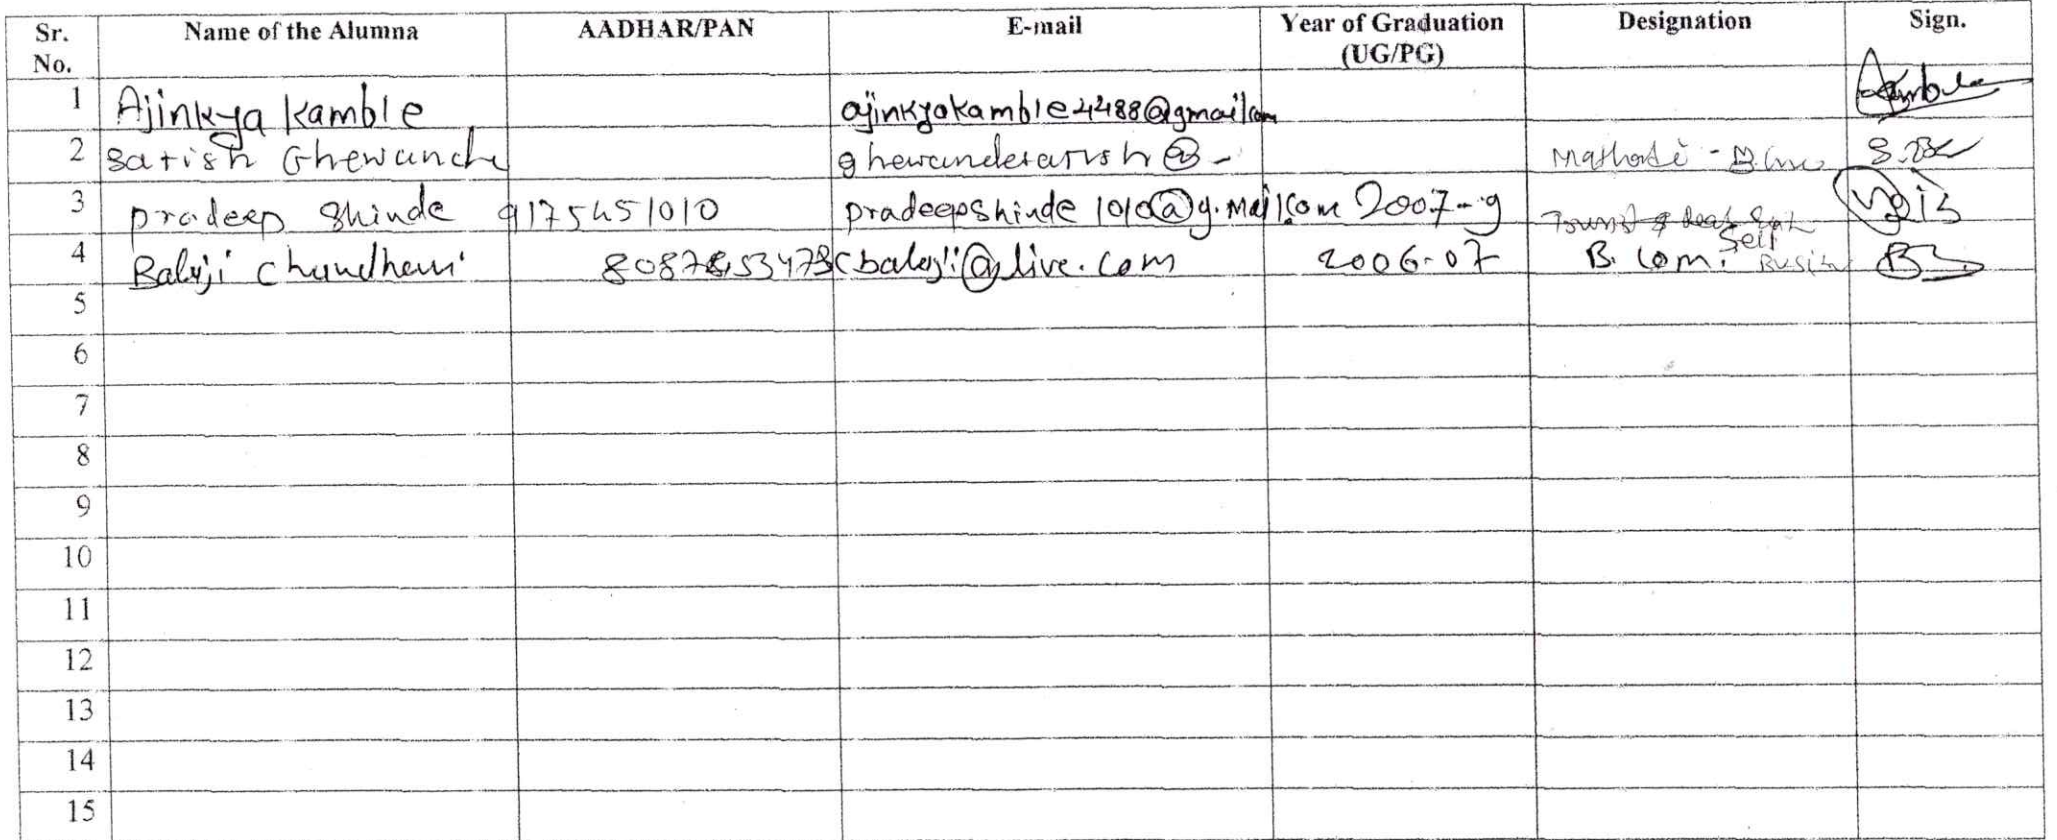 Sr. No. Name of the Alumna AADHAR/PAN E-mail Year of Graduation (UG/PG) Designation Sign.
1 Ajinkya Kamble ajinkyakamble4488@gmail.com
2 Satish Ghewande ghewandesatish@-
3 Pradeep Shinde 9175451010 pradeepshinde1010@g.mail.com 2007-
4 Balaji Chaudhari cbalaji@live.com 2006-07 B. Com. Self
5
6
7
8
9
10
11
12
13
14
15